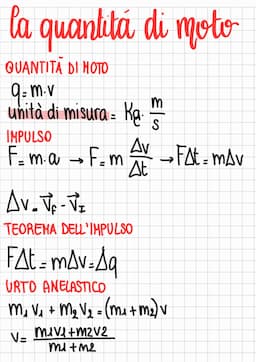 la quantitá di moto
QUANTITÁ DI MOTO
q=m·v
unità di misura = Kg · m/s
IMPULSO
F=m·a → F=m Δv/Δt → FΔt=mΔv
Δv=v⃗F-v⃗I
TEOREMA DELL'IMPULSO
FΔt=mΔv=Δq
URTO ANELASTICO
m1v1+m2v2=(m1+m2)v
v= m1v1+m2v2/m1+m2